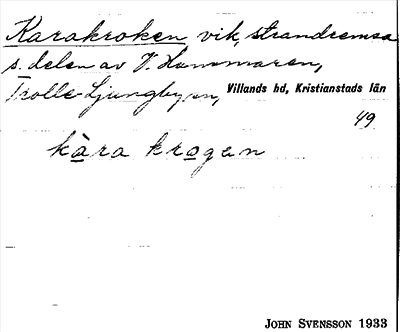 Karakroken, vik, strandremsa
s. delen av V. Hammaren,
Trolle-Ljungby sn, Villands hd, Kristianstads län
49
kàra krogen
JOHN SVENSSON 1933